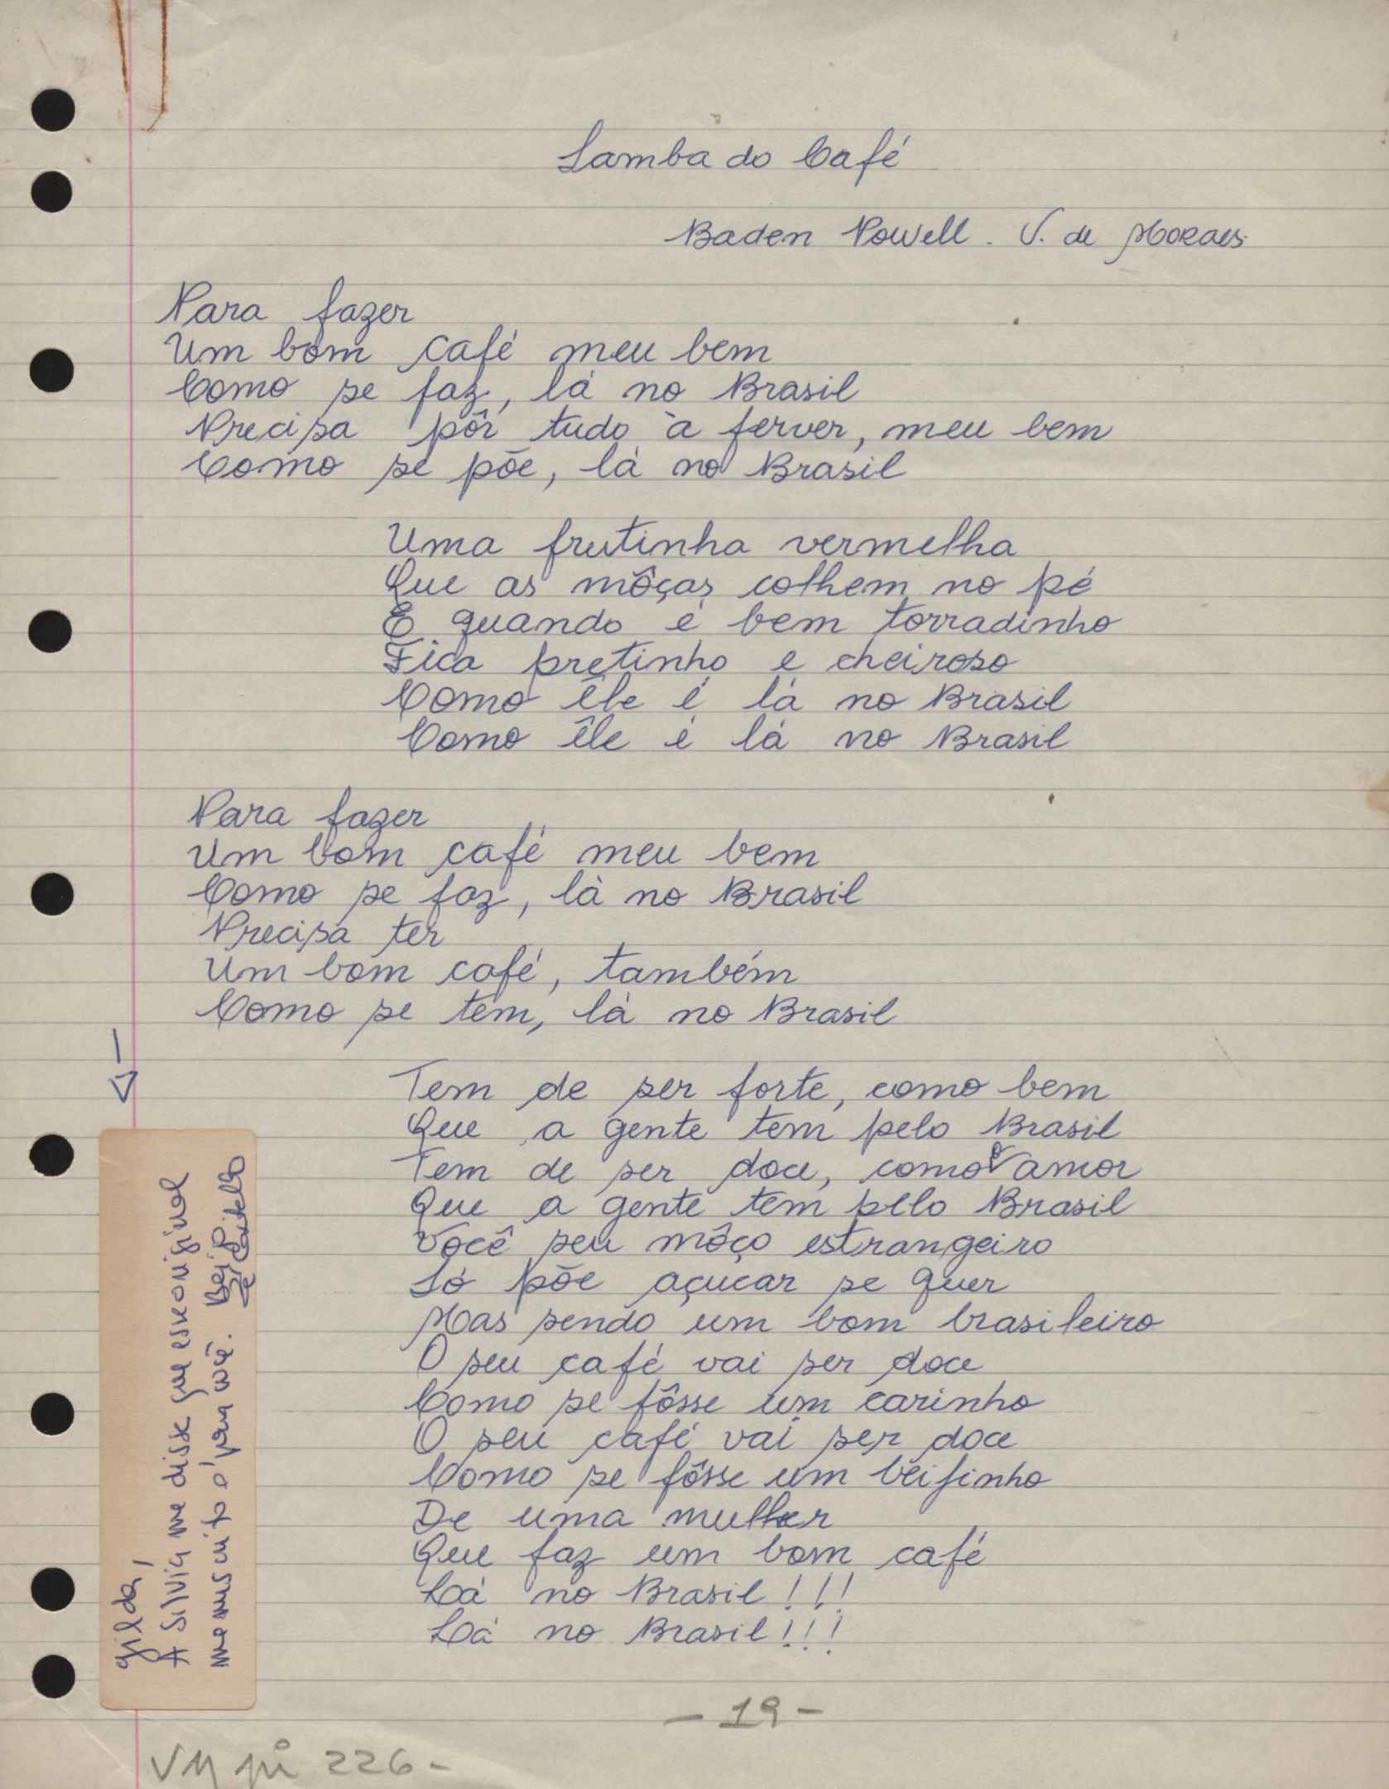 Samba do Café
Baden Powell. V. de Moraes
Para fazer
Um bom café meu bem
Como se faz, lá no Brasil
Precisa pôr tudo à ferver, meu bem
Como se põe, lá no Brasil
Uma frutinha vermelha
Que as môças colhem no pé
E quando é bem torradinho
Fica pretinho e cheiroso
Como êle é lá no Brasil
Como êle é lá no Brasil
Para fazer
Um bom café meu bem
Como se faz, lá no Brasil
Precisa ter
Um bom café, também
Como se tem, lá no Brasil
Tem de ser forte, como bem
Que a gente tem pelo Brasil
Tem de ser doce, como o amor
Que a gente tem pelo Brasil
Você seu môço estrangeiro
Só põe açucar se quer
Mas sendo um bom brasileiro
O seu café vai ser doce
Como se fôsse um carinho
O seu café vai ser doce
Como se fôsse um beijinho
De uma mulher
Que faz um bom café
Lá no Brasil!!!
Lá no Brasil!!!
Gilda,
A Silvia me disse que esse original
manuscrito é pra você. Beijo
- 19 -
VM pi 226 -